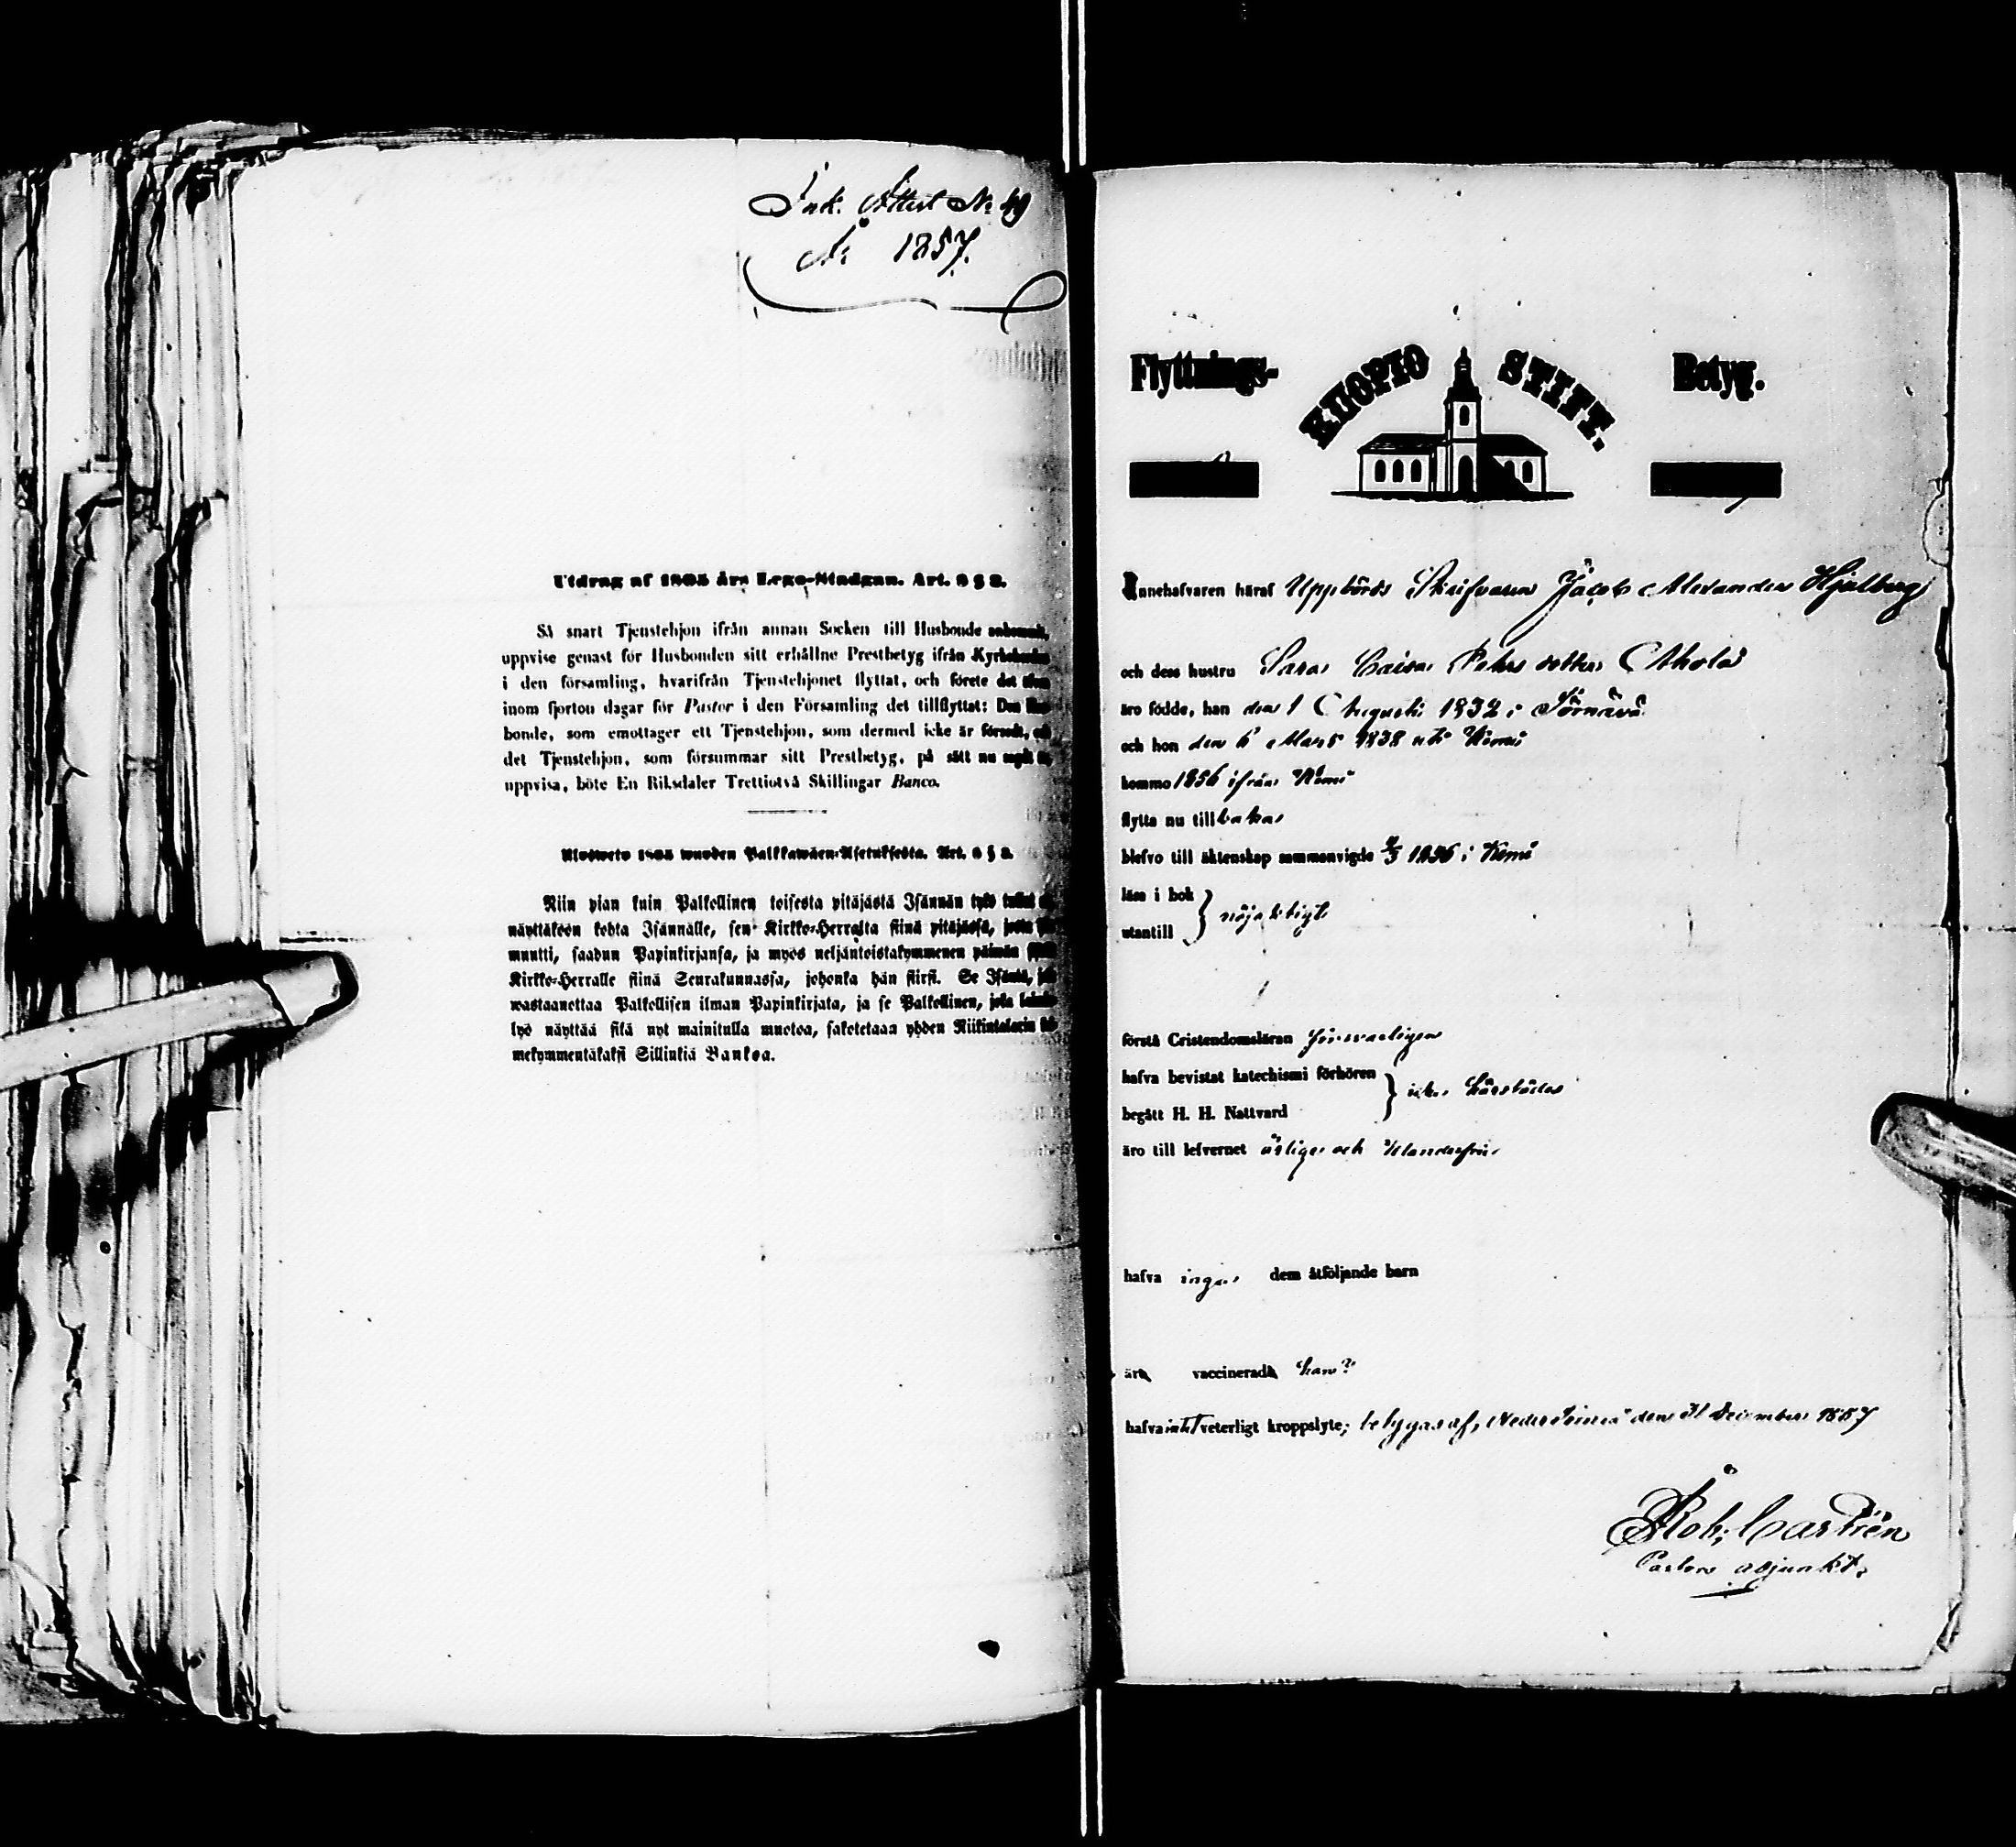 Ink. Attest No 49
År 1857.
Utdrag af 1805 års Lego-Stadgan. Art. 9 § 3.
Så snart Tjenstehjon ifrån annan Socken till Husbonde ankommit,
uppvise genast för Husbonden sitt erhållne Prestbetyg ifrån
i den församling, hvarifrån Tjenstehjonet flyttat, och förete det
inom fjorton dagar för Pastor i den Församling det tillflyttat: Den
bonde, som emottager ett Tjenstehjon, som dermed icke är försedt,
det Tjenstehjon, som försummar sitt Prestbetyg, på sätt nu sagdt är,
uppvisa, böte En Riksdaler Trettiotvå Skillingar Banco.
Ulosweto 1805 wuoden Palkkawäen-Asetuksesta. Art.
Niin pian kuin Palkollinen toisesta pitäjästä Isännän työ tullut
näyttäköön kohta Isännälle, sen Kirkko-Herralta siinä pitäjässä, josta
muutti, saadun Papinkirjansa, ja myös neljäntoistakymmenen päiwän
Kirkko-Herralle siinä Seurakunnassa, johonka hän siirsi. Se Isäntä,
wastaanottaa Palkollisen ilman Papinkirjata, ja se Palkollinen, joka
lyö näyttää sitä nyt mainitulla muotoa, sakotetaan yhden Riikintalarin
mekymmentäkaksi Sillinkiä Bankoa.
Flyttnings- KUOPIO STIFT. Betyg.
Innehafvaren häraf Uppbörds Skrifvaren Jacob Alexander Hjelberg
och dess hustru Sara Caisa Pehrs dotter Ahola
äro födde, han den 1 Augusti 1832 i
och hon den 6 Mars 1838 uti Kemi
kommo 1856 ifrån Kemi
flytta nu till baka
blefvo till äktenskap sammanvigde 1856 i Kemi
läsa i bok } nöjaktigt
utantill
förstå Cristendomsläran försvarligen
hafva bevistat katechismi förhören } icke härstädes
begått H. H. Nattvard
äro till lefvernet ärliga och klanderfria
hafva inga dem åtföljande barn
äro vaccinerade han?
hafva intet veterligt kroppslyte; betygas af, Neder Torneå den 31 December 1857
Rob. Castrén
Pastors adjunkt.